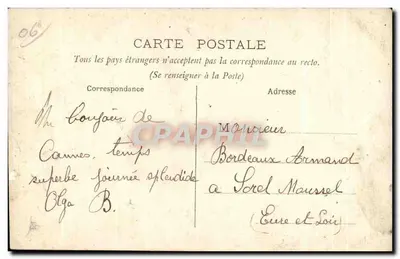 06
CARTE POSTALE
Tous les pays étrangers n'acceptent pas la correspondance au recto.
(Se renseigner à la Poste)
Correspondance
Adresse
Un Bonjour de
Cannes. temps
superbe journée splendide
Olga B.
CPAPHIL
Monsieur
Bordeaux Armand
a Sorel Moussel
(Eure et Loir)